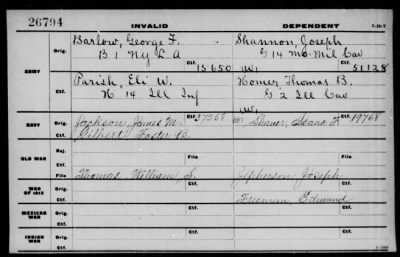 26794
INVALID DEPENDENT
ARMY
Orig. Barlow, George F. Shannon, Joseph
B. 1 N.Y. L. A G 14 Mo. Mil Cav
Ctf. 15650 Ctf. 51128
Orig. Parish, Eli W. Homer, Thomas B.
K 14 Ill Inf G 2 Ill Cav
Ctf.
NAVY
Orig. Jackson, James M. Ctf. 37258 Ctf. 19768
Gilbert, Foster B.
OLD WAR
Rej.
Ctf. File File
WAR OF 1812
Orig. Thomas, William S. Ctf. Jepherson, Joseph Ctf.
Ctf. Freeman, Edmund
MEXICAN WAR
Orig.
Ctf.
INDIAN WAR
Orig.
Ctf.